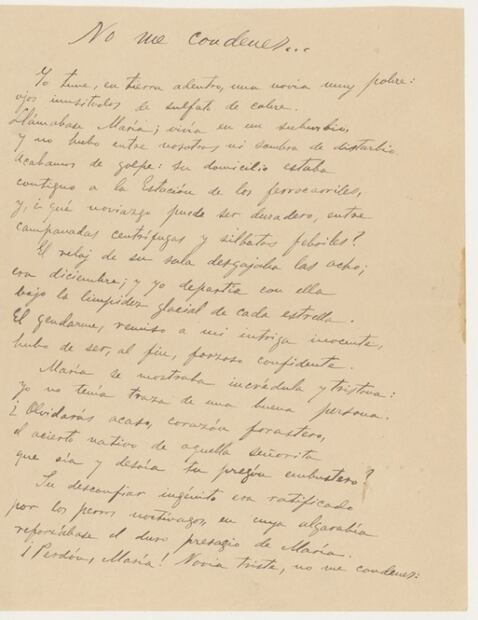 No me condenes...
Yo tuve, en tierra adentro, una novia muy pobre:
ojos inusitados de sulfato de cobre.
Llamábase María; vivía en un suburbio,
y no hubo entre nosotros ni sombra de disturbio.
Acabamos de golpe: su domicilio estaba
contiguo a la Estación de los ferrocarriles,
y, ¿qué noviazgo puede ser duradero, entre
campanadas centrífugas y silbatos febriles?
El reloj de su sala desgajaba las ocho;
era diciembre; y yo departía con ella
bajo la limpidez glacial de cada estrella.
El gendarme, remiso a mi intriga inocente,
hubo de ser, al fin, forzoso confidente.
María se mostraba incrédula y tristona:
Yo no tenía traza de una buena persona.
¿Olvidarás acaso, corazón forastero,
el acierto nativo de aquella señorita
que oía y desoía tu pregón embustero?
Su desconfiar ingénito era ratificado
por los perros noctívagos, en cuya algarabía
reforzábase el duro presagio de María.
¡Perdón, María! Novia triste, no me condenes: